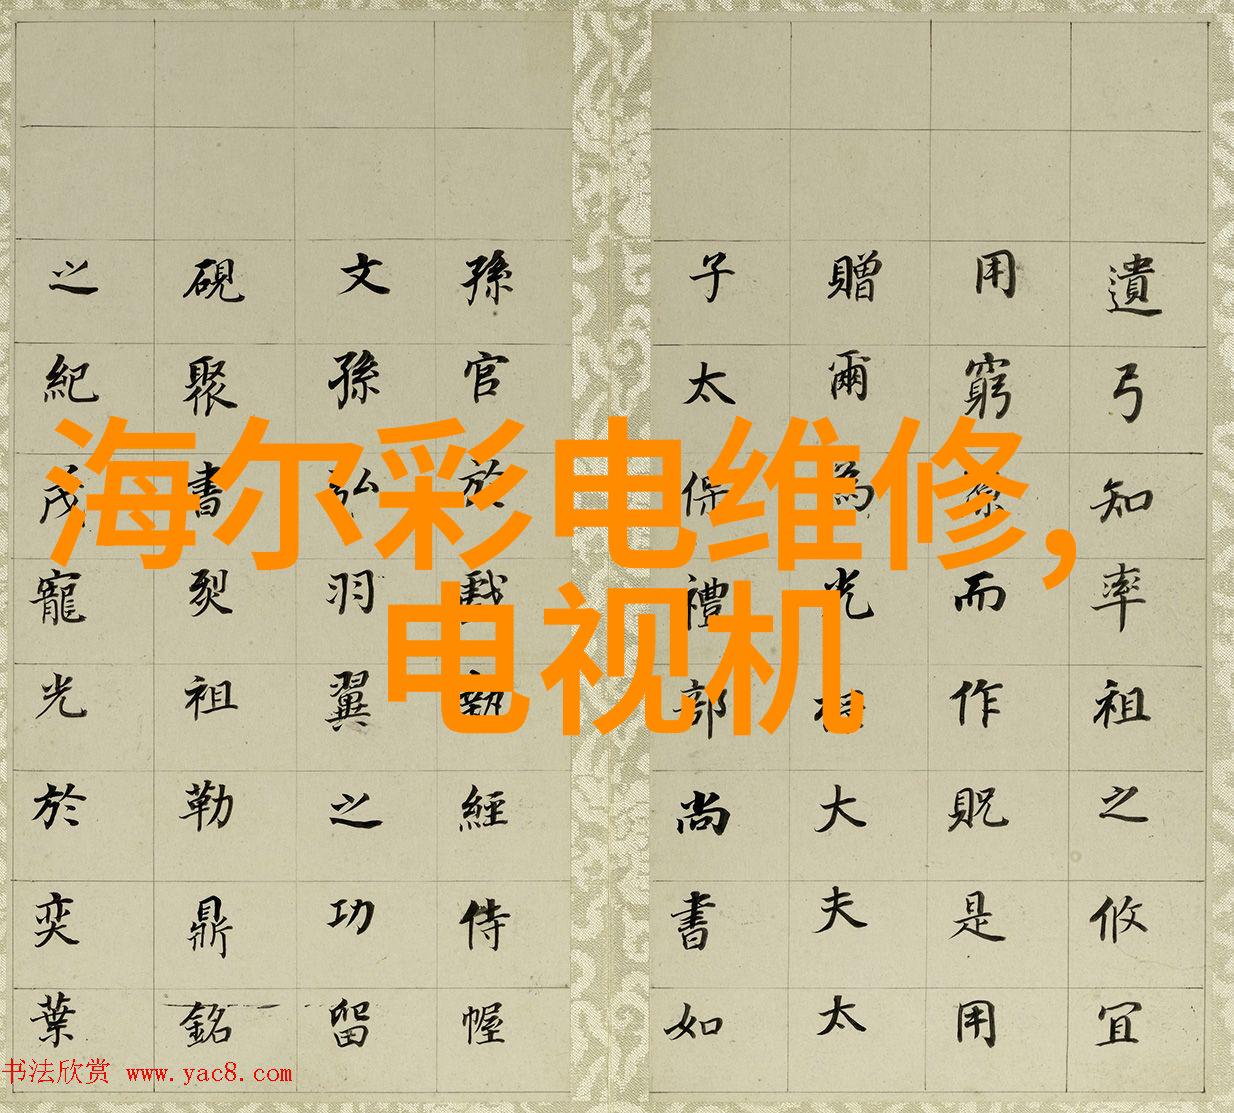 遺弓知率祖之攸宜
用窮而作貺是用
贈爾為光祿大夫太
子太保禮部尚書如
孫官於戲執經侍幄
文孫弘羽翼之功留
硯聚書裂祖勒鼎銘
之紀茂寵光於奕葉
海尔彩电维修,
电视机
书法欣赏 www.yac8.com